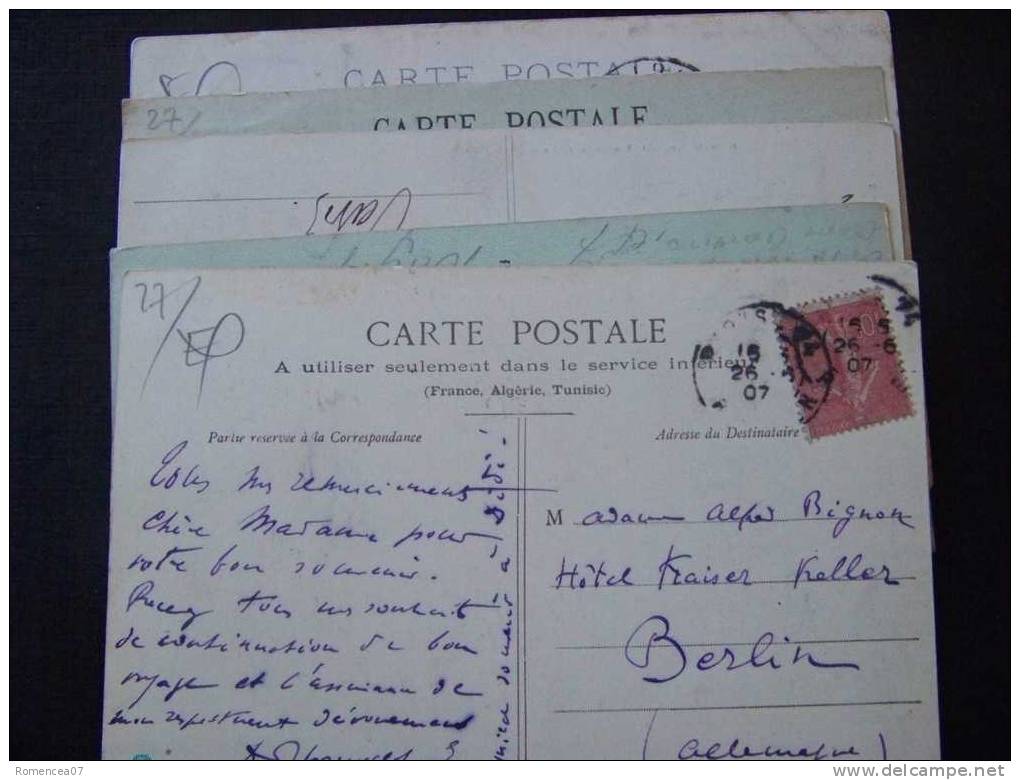 CARTE POSTALE
27/
CARTE POSTALE
27/
CARTE POSTALE
A utiliser seulement dans le service intérieur
(France, Algérie, Tunisie)
Partie réservée à la Correspondance
Adresse du Destinataire
16 5
26 - 6
07
26
07
Tous nos remerciements
chère Madame pour
votre bon souvenir.
Recevez tous nos souhaits
de continuation de bon
voyage et l'assurance de
mon respectueux dévouement
Madame Alfred Bignon
Hôtel Kaiser Keller
Berlin
(Allemagne)
Romencea07
www.delcampe.net